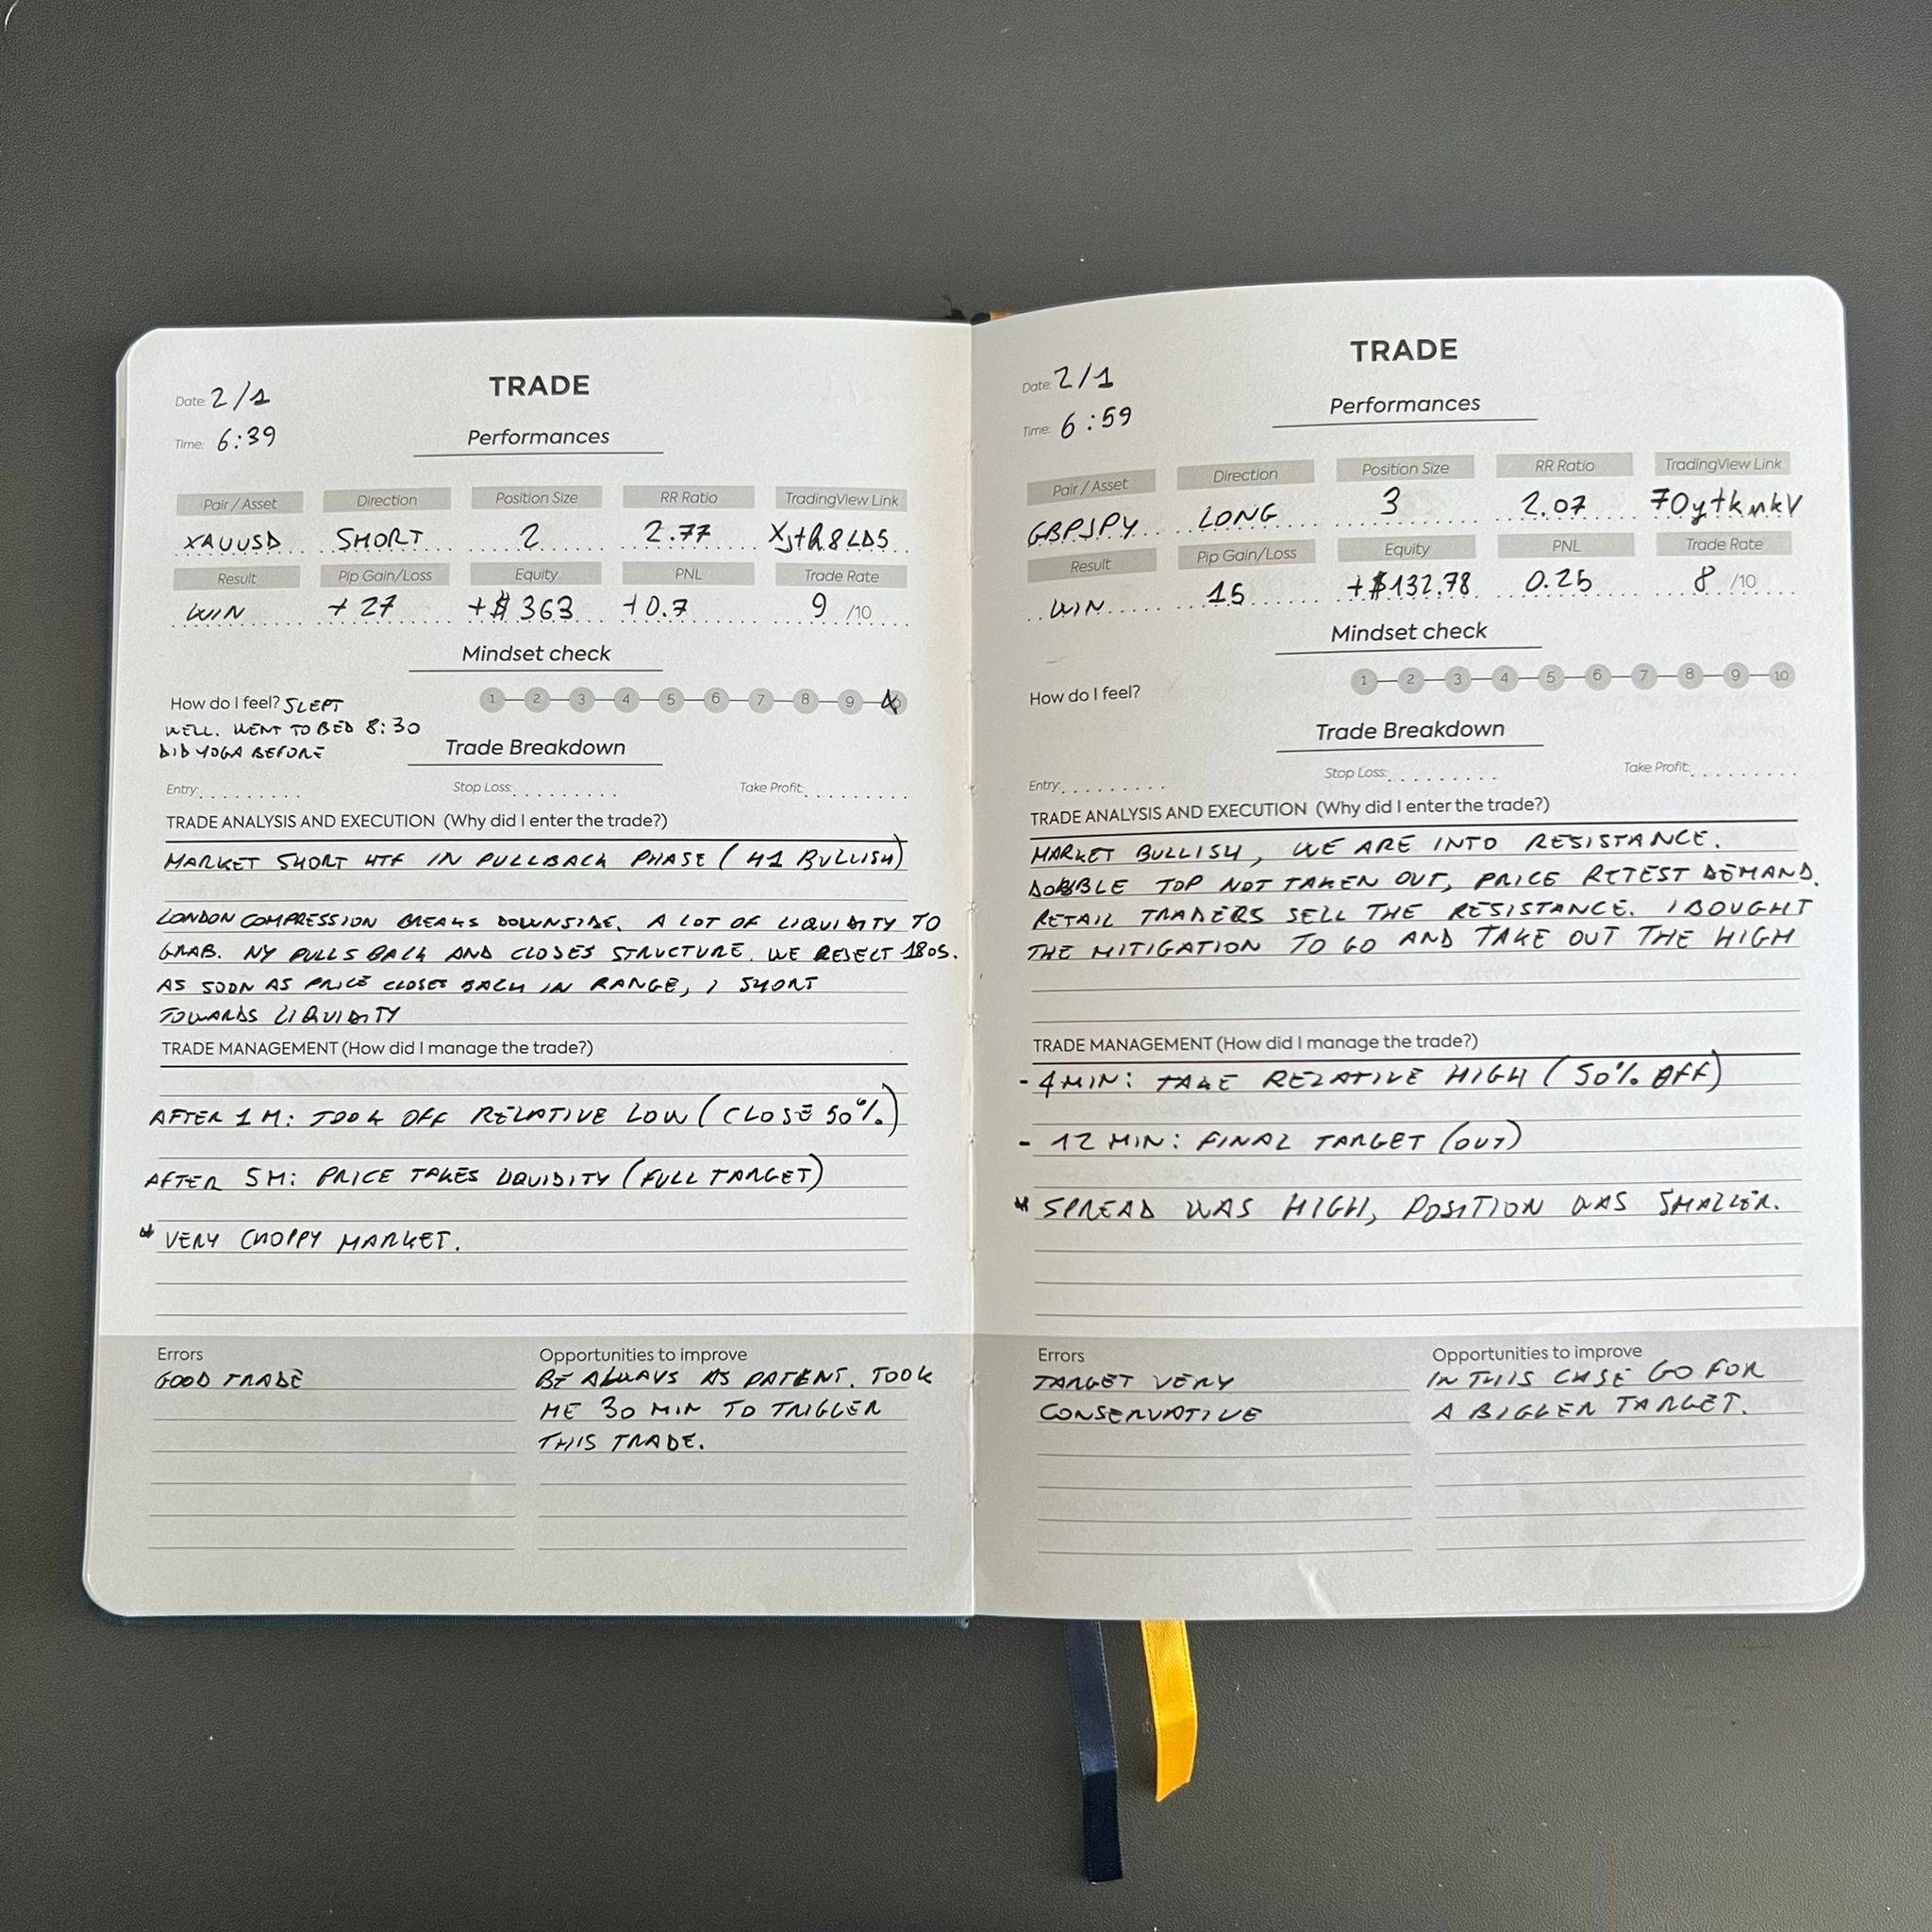 TRADE
Date: 2/1
Time: 6:39
Performances
Pair / Asset Direction Position Size RR Ratio TradingView Link
XAUUSD SHORT 2 2.77
Result Pip Gain/Loss Equity PNL Trade Rate
WIN +27 +$363 +0.7 9 /10
Mindset check
How do I feel? SLEPT
1 2 3 4 5 6 7 8 9
WELL. WENT TO BED 8:30
DID YOGA BEFORE
Trade Breakdown
Entry: Stop Loss: Take Profit:
TRADE ANALYSIS AND EXECUTION (Why did I enter the trade?)
MARKET SHORT HTF IN PULLBACK PHASE (H1 BULLISH)
LONDON COMPRESSION BREAKS DOWNSIDE. A LOT OF LIQUIDITY TO
GRAB. NY PULLS BACK AND CLOSES STRUCTURE. WE REJECT 1805.
AS SOON AS PRICE CLOSES BACK IN RANGE, I SHORT
TOWARDS LIQUIDITY
TRADE MANAGEMENT (How did I manage the trade?)
AFTER 1M: TOOK OFF RELATIVE LOW (CLOSE 50%)
AFTER 5M: PRICE TAKES LIQUIDITY (FULL TARGET)
* VERY CHOPPY MARKET.
Errors
GOOD TRADE
Opportunities to improve
BE ALWAYS AS PATENT. TOOK
ME 30 MIN TO TRIGGER
THIS TRADE.
TRADE
Date: 2/1
Time: 6:59
Performances
Pair / Asset Direction Position Size RR Ratio TradingView Link
GBPJPY LONG 3 2.07
Result Pip Gain/Loss Equity PNL Trade Rate
WIN 15 +$132.78 0.25 8 /10
Mindset check
How do I feel?
1 2 3 4 5 6 7 8 9 10
Trade Breakdown
Entry: Stop Loss: Take Profit:
TRADE ANALYSIS AND EXECUTION (Why did I enter the trade?)
MARKET BULLISH, WE ARE INTO RESISTANCE.
DOUBLE TOP NOT TAKEN OUT, PRICE RETEST DEMAND.
RETAIL TRADERS SELL THE RESISTANCE. I BOUGHT
THE MITIGATION TO GO AND TAKE OUT THE HIGH
TRADE MANAGEMENT (How did I manage the trade?)
- 4 MIN: TAKE RELATIVE HIGH (50% OFF)
- 12 MIN: FINAL TARGET (OUT)
* SPREAD WAS HIGH, POSITION WAS SMALLER.
Errors
TARGET VERY
CONSERVATIVE
Opportunities to improve
IN THIS CASE GO FOR
A BIGGER TARGET.